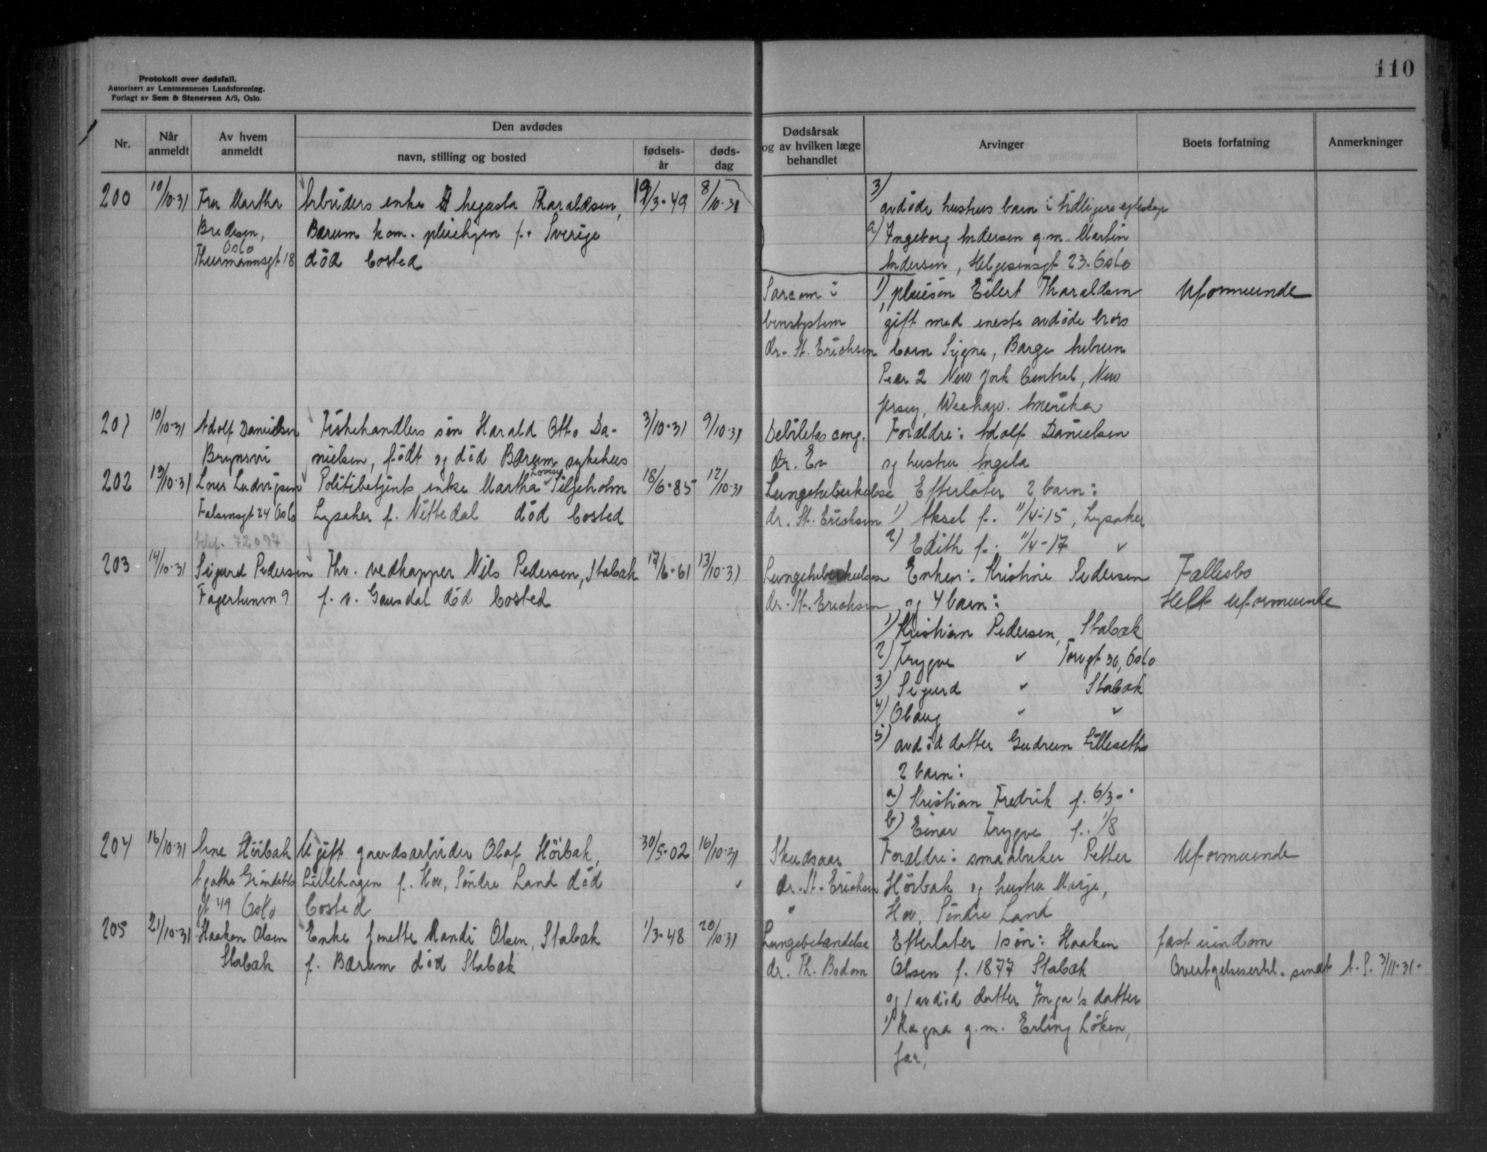 Protokoll over dødsfall.
Autorisert av Lensmennenes Landsforening.
Forlagt av Sem & Stenersen A/S, Oslo.
110
Nr.
Når anmeldt
Av hvem anmeldt
Den avdødes
navn, stilling og bosted
fødsels-år
døds-dag
Dødsårsak og av hvilken læge behandlet
Arvinger
Boets forfatning
Anmerkninger
200 10/10-31 Fru Martha Arbeiders enke Thoraldsen, 19/3-49 8/10-31
Bredesen, Bærum kom. pleiehjem f. Sverige
Oslo
Thurmannsgt 18 død bosted
3/
avdøde husbus barn i tidligere
a) Ingeborg Andersen g.m. Martin
Andersen, Helgesensgt 23. Oslo
Sarcom i 1) pleiesøn Eilert Tharaldsen Uformuende
gift med eneste avdøde brors
dr. St. Erichsen barn Signe, Barge
Pear 2 New York Central, New
Jersey, Amerika
201 10/10-31 Adolf Danielsen Fiskehandlers søn Harald Otto Da- 3/10-31 9/10-31 Debilitas cong. Foreldre: Adolf Danielsen
nielsen, født og død Bærum sykehus dr. og hustru Angela
202 13/10-31 Ludvigsen Politibetjents enke Martha Lovise Siljeholm 18/6-85 12/10-31 Lungetuberkulose Efterlater 2 barn:
Falsensgt 24 Oslo Lysaker f. Nittedal død bosted dr. St. Erichsen 1) Aksel f. 11/4-15, Lysaker
telef. 72097 2) Edith f. 11/4-17 "
203 14/10-31 Sigurd Pedersen Fhv. vedkapper Nils Pedersen, Stabæk 17/6-61 13/10-31 Lungetuberkulose Enken: Kristine Pedersen Fællesbo
Fagertunvn 9 f. v. Gausdal død bosted dr. St. Erichsen og 4 barn: Helt uformuende
1) Kristian Pedersen, Stabæk
2) Trygve " 36, Oslo
3) Sigurd " Stabæk
4) Olaug " "
5) avdød datter Gudrun Lilleseths
2 barn:
a) Kristian Fredrik f. 6/3-
b) Einar Trygve f. 1/8
204 16/10-31 Arne Høibak Ugift gaardsarbeider Olaf Høibak, 30/5-02 16/10-31 Skudsaar Foreldre: smaabruker Petter Uformuende
Agathe Grøndahls Lillehagen f. Hov, Søndre Land død " dr. St. Erichsen Høibak og hustru Marje,
gt 49 Oslo bosted " Hov, Søndre Land
205 21/10-31 Haakon Olsen Enke Randi Olsen, Stabæk 1/3-48 20/10-31 Lungebetændelse Efterlater 1 søn: Haakon fast eiendom
Stabæk f. Bærum død Stabæk dr. Th. Bodom Olsen f. 1877 Stabæk sendt A. S. 3/11-31-
og 1 avdød datter Inga's datter
1) Ragna g.m. Erling Løken,
Jar,